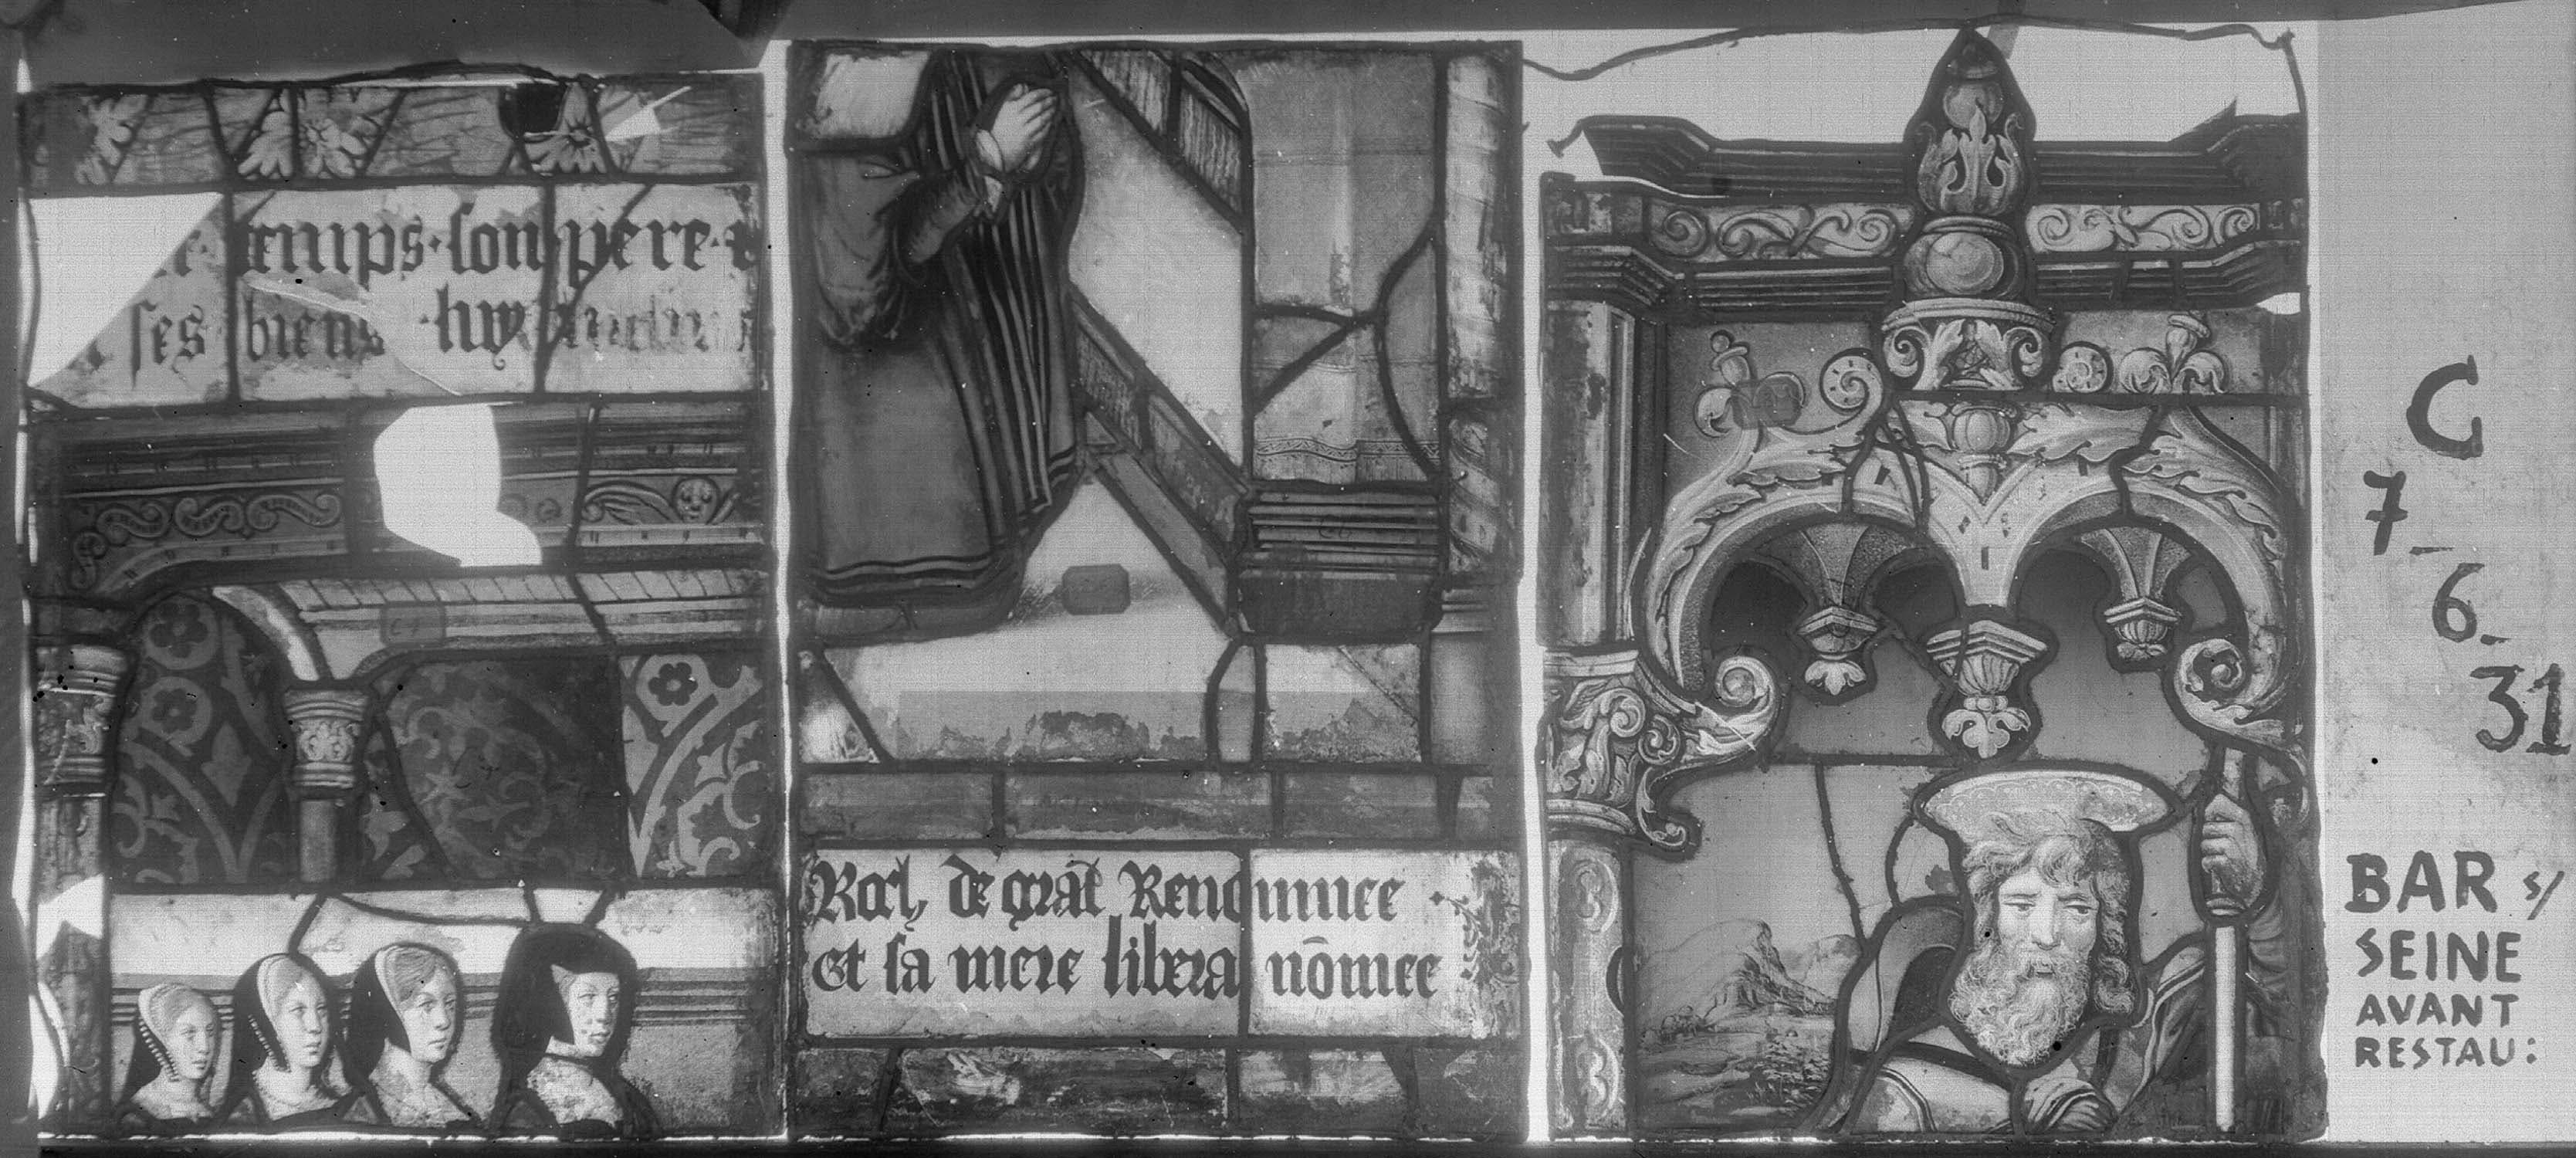 temps · son pere ·
ses biens · luy
Roch de grāt Renōmmee
et sa mere libera nōmee
C
7_
6_
31
BAR s/
SEINE
AVANT
RESTAU: